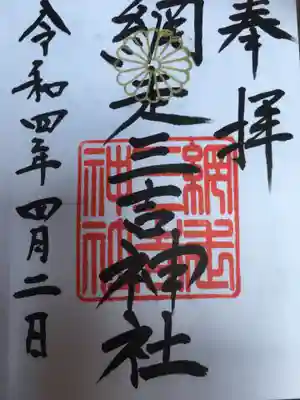 奉拝
網走三吉神社
令和四年四月二日
網走三吉神社